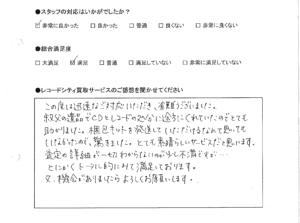 ●スタッフの対応はいかがでしたか?
☑非常に良かった □良かった □普通 □良くない □非常に良くない
●総合満足度
□大満足 ☑満足 □普通 □満足していない □非常に満足していない
●レコードシティ買取サービスのご感想をお聞かせください
この度は迅速なご対応いただき、有難うございました。
叔父の遺品でCDとレコードの処分に途方にくれていたのでとても
助かりました。梱包キットを発送していただけるなんて思いても
いなかったので、驚きました。とても素晴らしいサービスだと思います。
査定の詳細が一切わからないのが少し不満ですが…
とにかくトータル的にみて満足しております。
又、機会がありましたらよろしくお願いします。